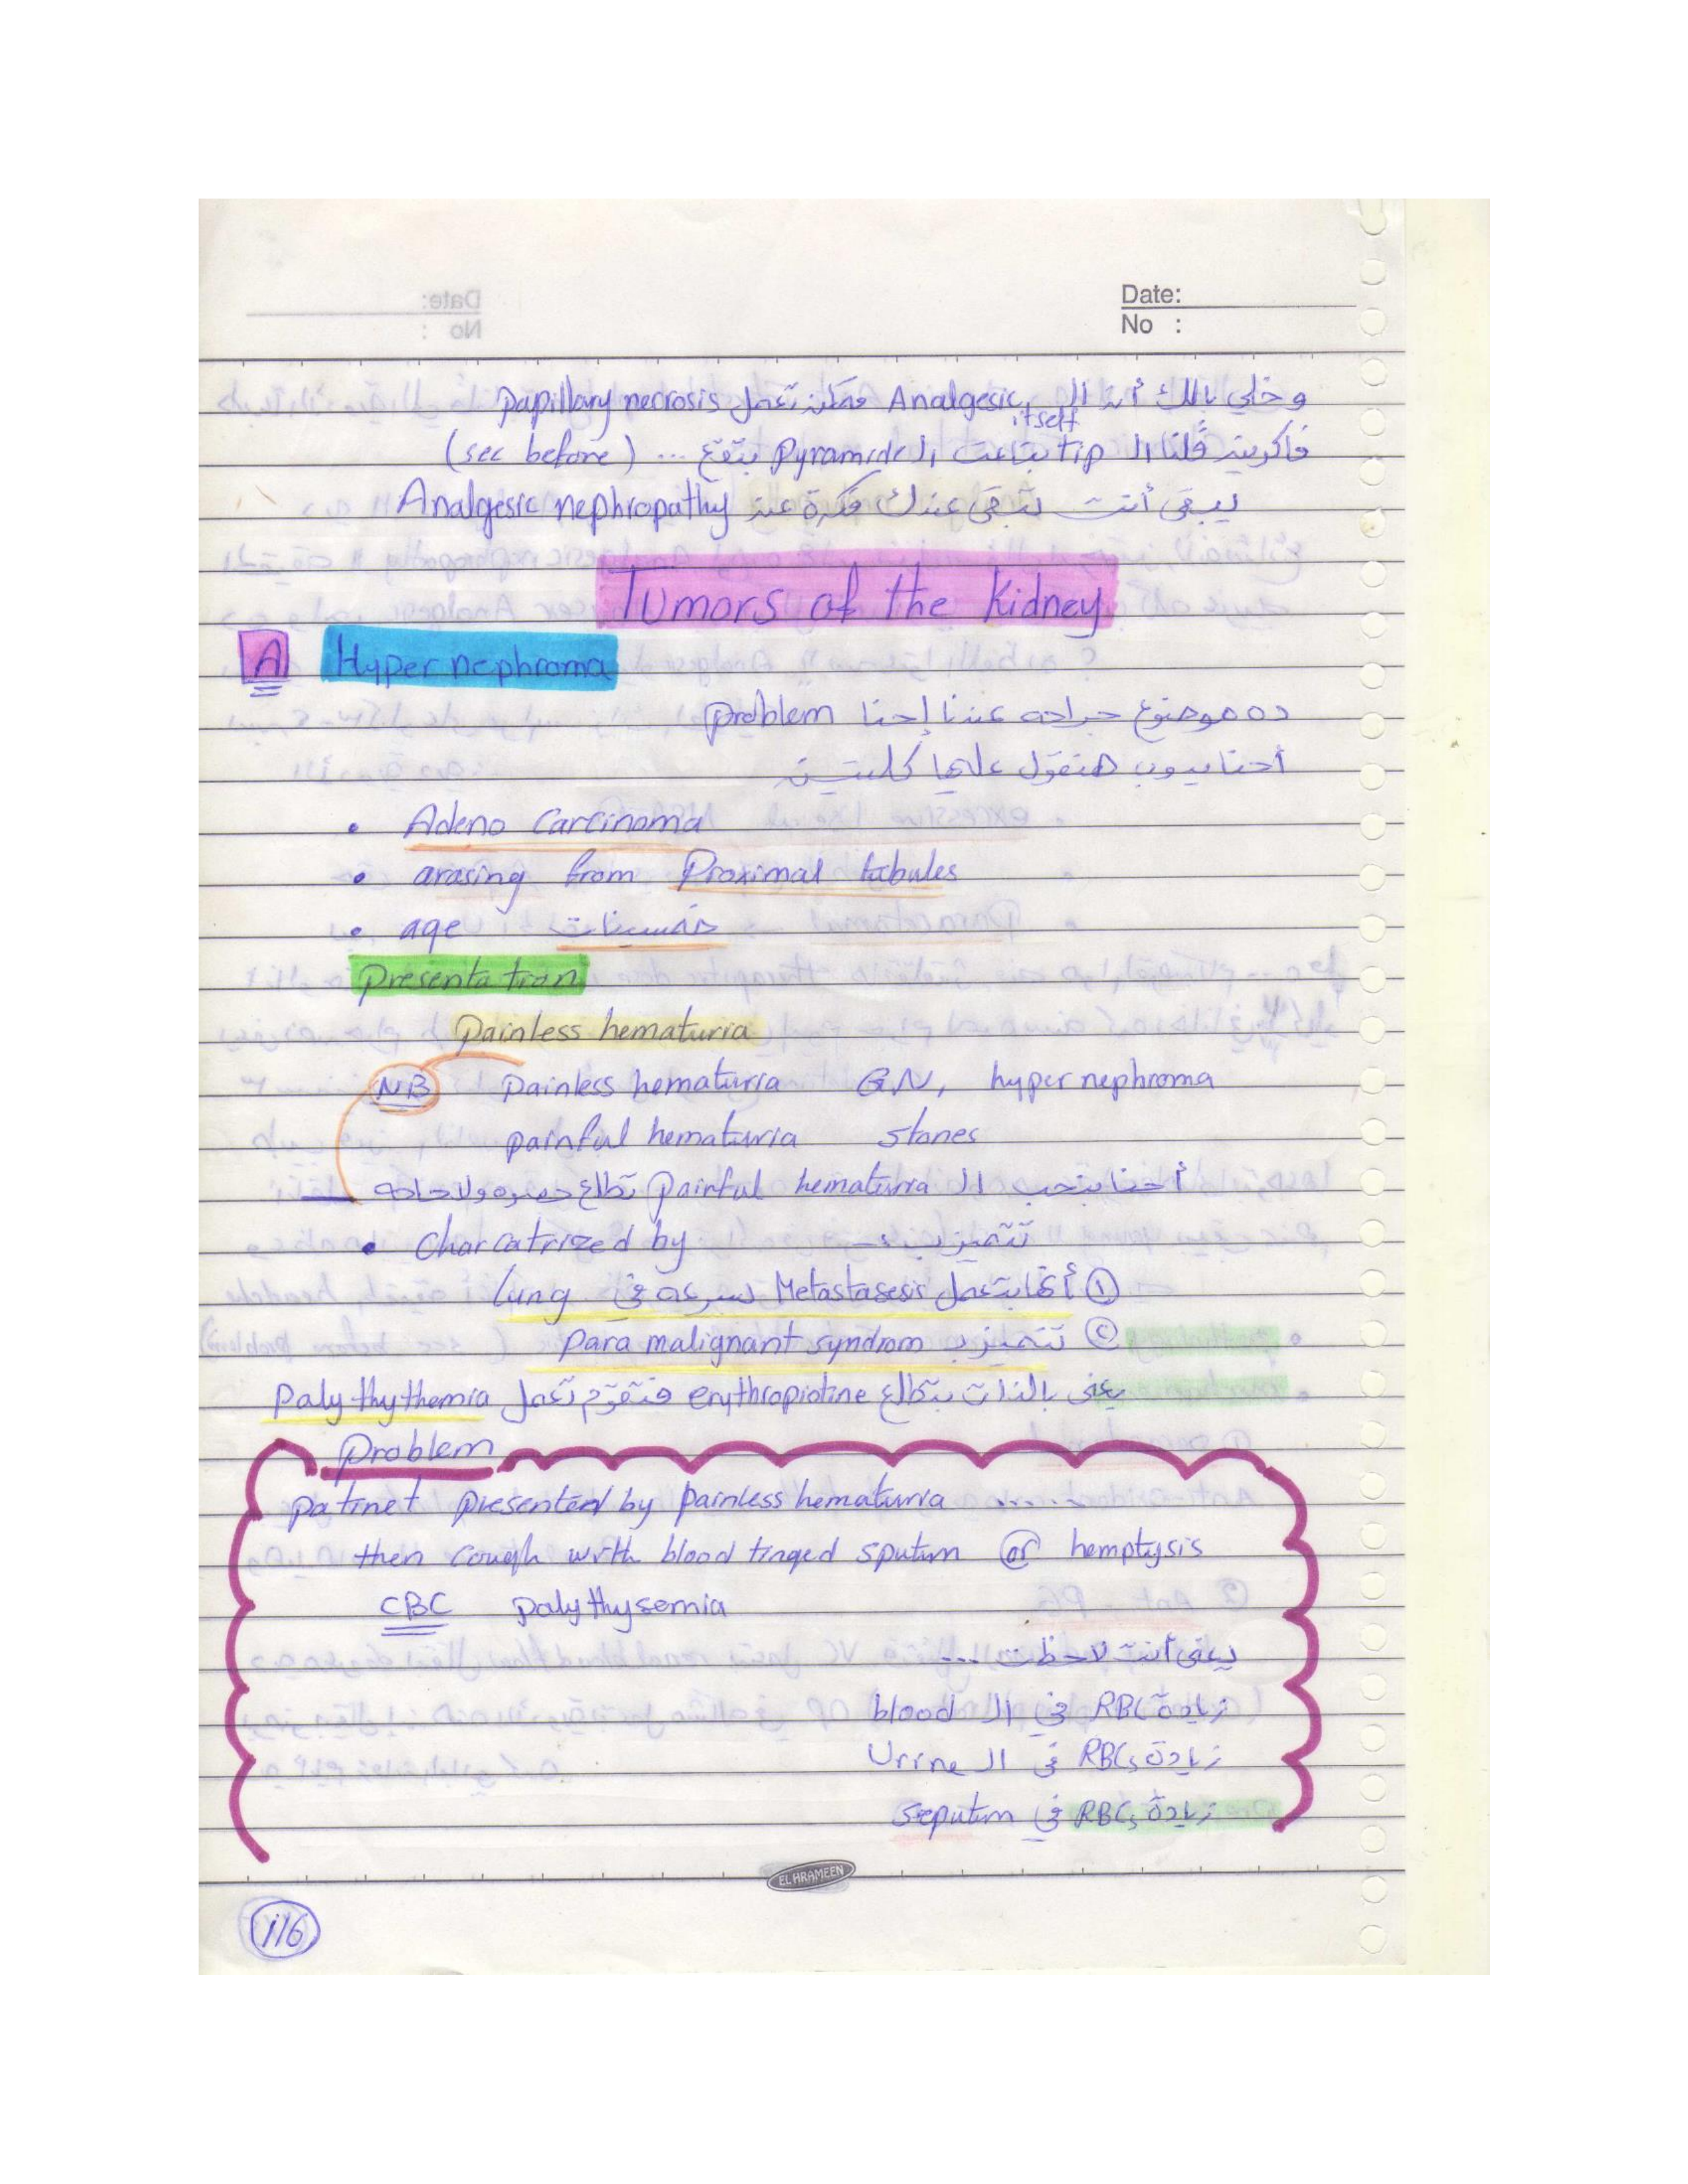 Date:
No :
وخلي بالك أن ال Analgesic itself ممكن تعمل papillary necrosis
فاكرين قلنا ال tip بتاعت ال pyramid بتقع ... (see before)
يبقى أنت تبقى عندك فكرة عن Analgesic nephropathy
Tumors of the Kidney
A Hyper nephroma
ده موضوع جراحه عندنا إحنا problem
أحنا يدوب هنقول عليها كلمتين
• Adeno Carcinoma
• arasing from Proximal tubules
• age خمسينات
Presentation
Painless hematuria
NB Painless hematuria GN, hyper nephroma
painful hematuria stones
أحنا بنحب ال Painful hematuria تطلع حصوه ولا حاجه
• Charcatrized by تتميز ب :-
① أنها بتعمل Metastasesis بسرعه في lung
② تتميز ب para malignant syndrom
يعني بالذات بتطلع erythropiotine فتقوم تعمل Polythythemia
Problem
patinet presented by painless hematuria ......
then cough with blood tinged sputum or hemptysis
CBC polythysemia
يعني أنت لاحظت ...
زيادة RBCs في ال blood
زيادة RBCs في ال Urine
زيادة RBCs في seputum
EL HRAMEEN
116